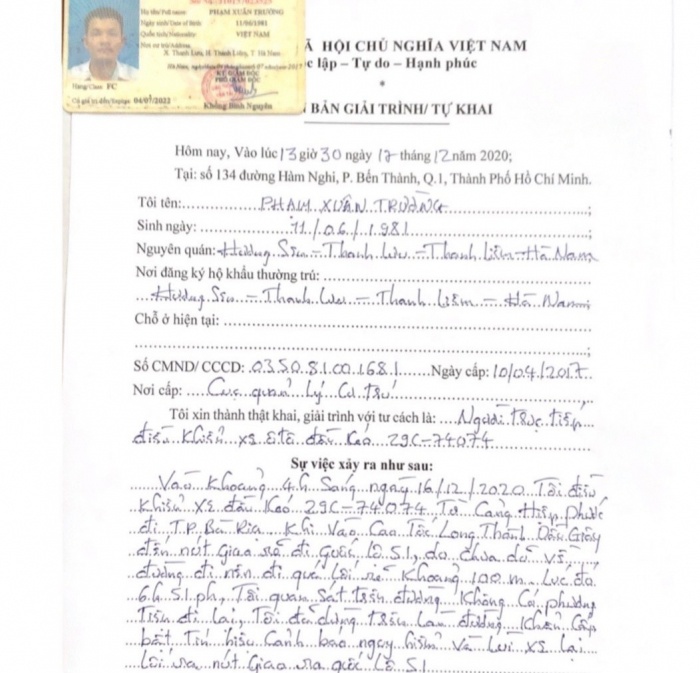 Họ tên/Full name PHẠM XUÂN TRƯỜNG
Ngày sinh/Date of Birth 11/06/1981
Quốc tịch/Nationality VIỆT NAM
Nơi cư trú/Address
X. Thanh Lưu, H. Thanh Liêm, T. Hà Nam
Hạng/Class FC
Có giá trị đến/Expires 04/07/2022
HỘI CHỦ NGHĨA VIỆT NAM
lập – Tự do – Hạnh phúc
BẢN GIẢI TRÌNH/ TỰ KHAI
Hôm nay, Vào lúc 13 giờ 30 ngày 17 tháng 12 năm 2020;
Tại: số 134 đường Hàm Nghi, P. Bến Thành, Q.1, Thành Phố Hồ Chí Minh.
Tôi tên: PHẠM XUÂN TRƯỜNG
Sinh ngày: 11/06/1981
Nguyên quán: Hướng Sơn – Thanh Lưu – Thanh Liêm – Hà Nam
Nơi đăng ký hộ khẩu thường trú:
Hướng Sơn – Thanh Lưu – Thanh Liêm – Hà Nam
Chỗ ở hiện tại:
Số CMND/ CCCD: 035081001681 Ngày cấp: 10/04/2017
Nơi cấp: Cục quản Lý Cư Trú
Tôi xin thành thật khai, giải trình với tư cách là: Người Trực tiếp
điều Khiển xe ôtô đầu Kéo 29C-74074
Sự việc xảy ra như sau:
Vào Khoảng 4h Sáng ngày 16/12/2020 Tôi điều
Khiển xe đầu Kéo 29C-74074 Từ Cảng Hiệp Phước
đi T.P Bà Rịa Khi Vào Cao Tốc Long Thành Dầu Giây
đến nút Giao rẽ đi Quốc Lộ 51, do chưa rõ về
đường đi nên đi quá Lối rẽ Khoảng 100m. Lúc đó
6h 51 ph, Tôi quan Sát trên đường Không Có phương
Tiện đi lại, Tôi đã dừng trên Làn đường Khẩn Cấp
bật Tín hiệu Cảnh báo nguy hiểm Và Lùi xe lại
Lối ra nút Giao ra quốc Lộ 51